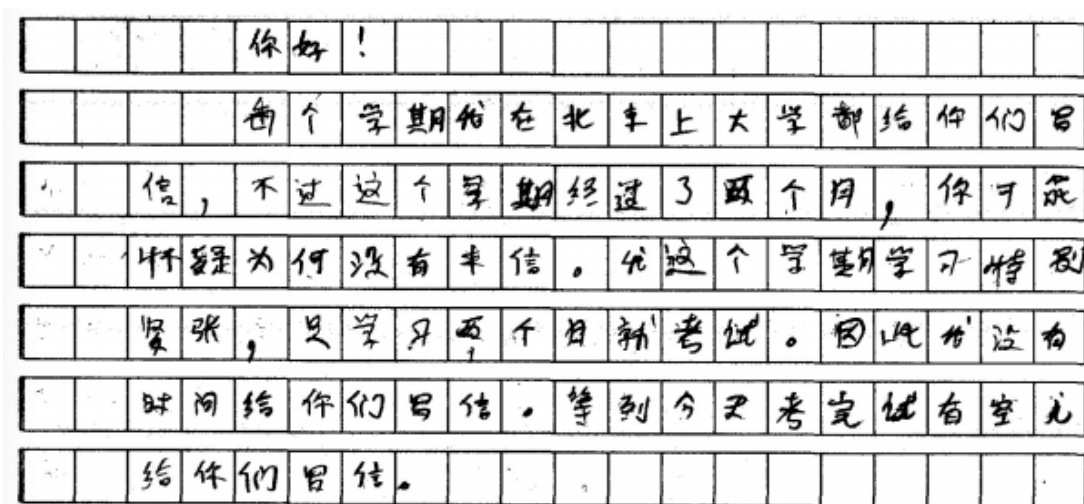 你好！
每个学期我在北京上大学都给你们写
信，不过这个学期经过了两个月，你可能
怀疑为何没有来信。我这个学期学习特别
紧张，只学习两个月就考试。因此我没有
时间给你们写信。等到今天考完试有空儿
给你们写信。